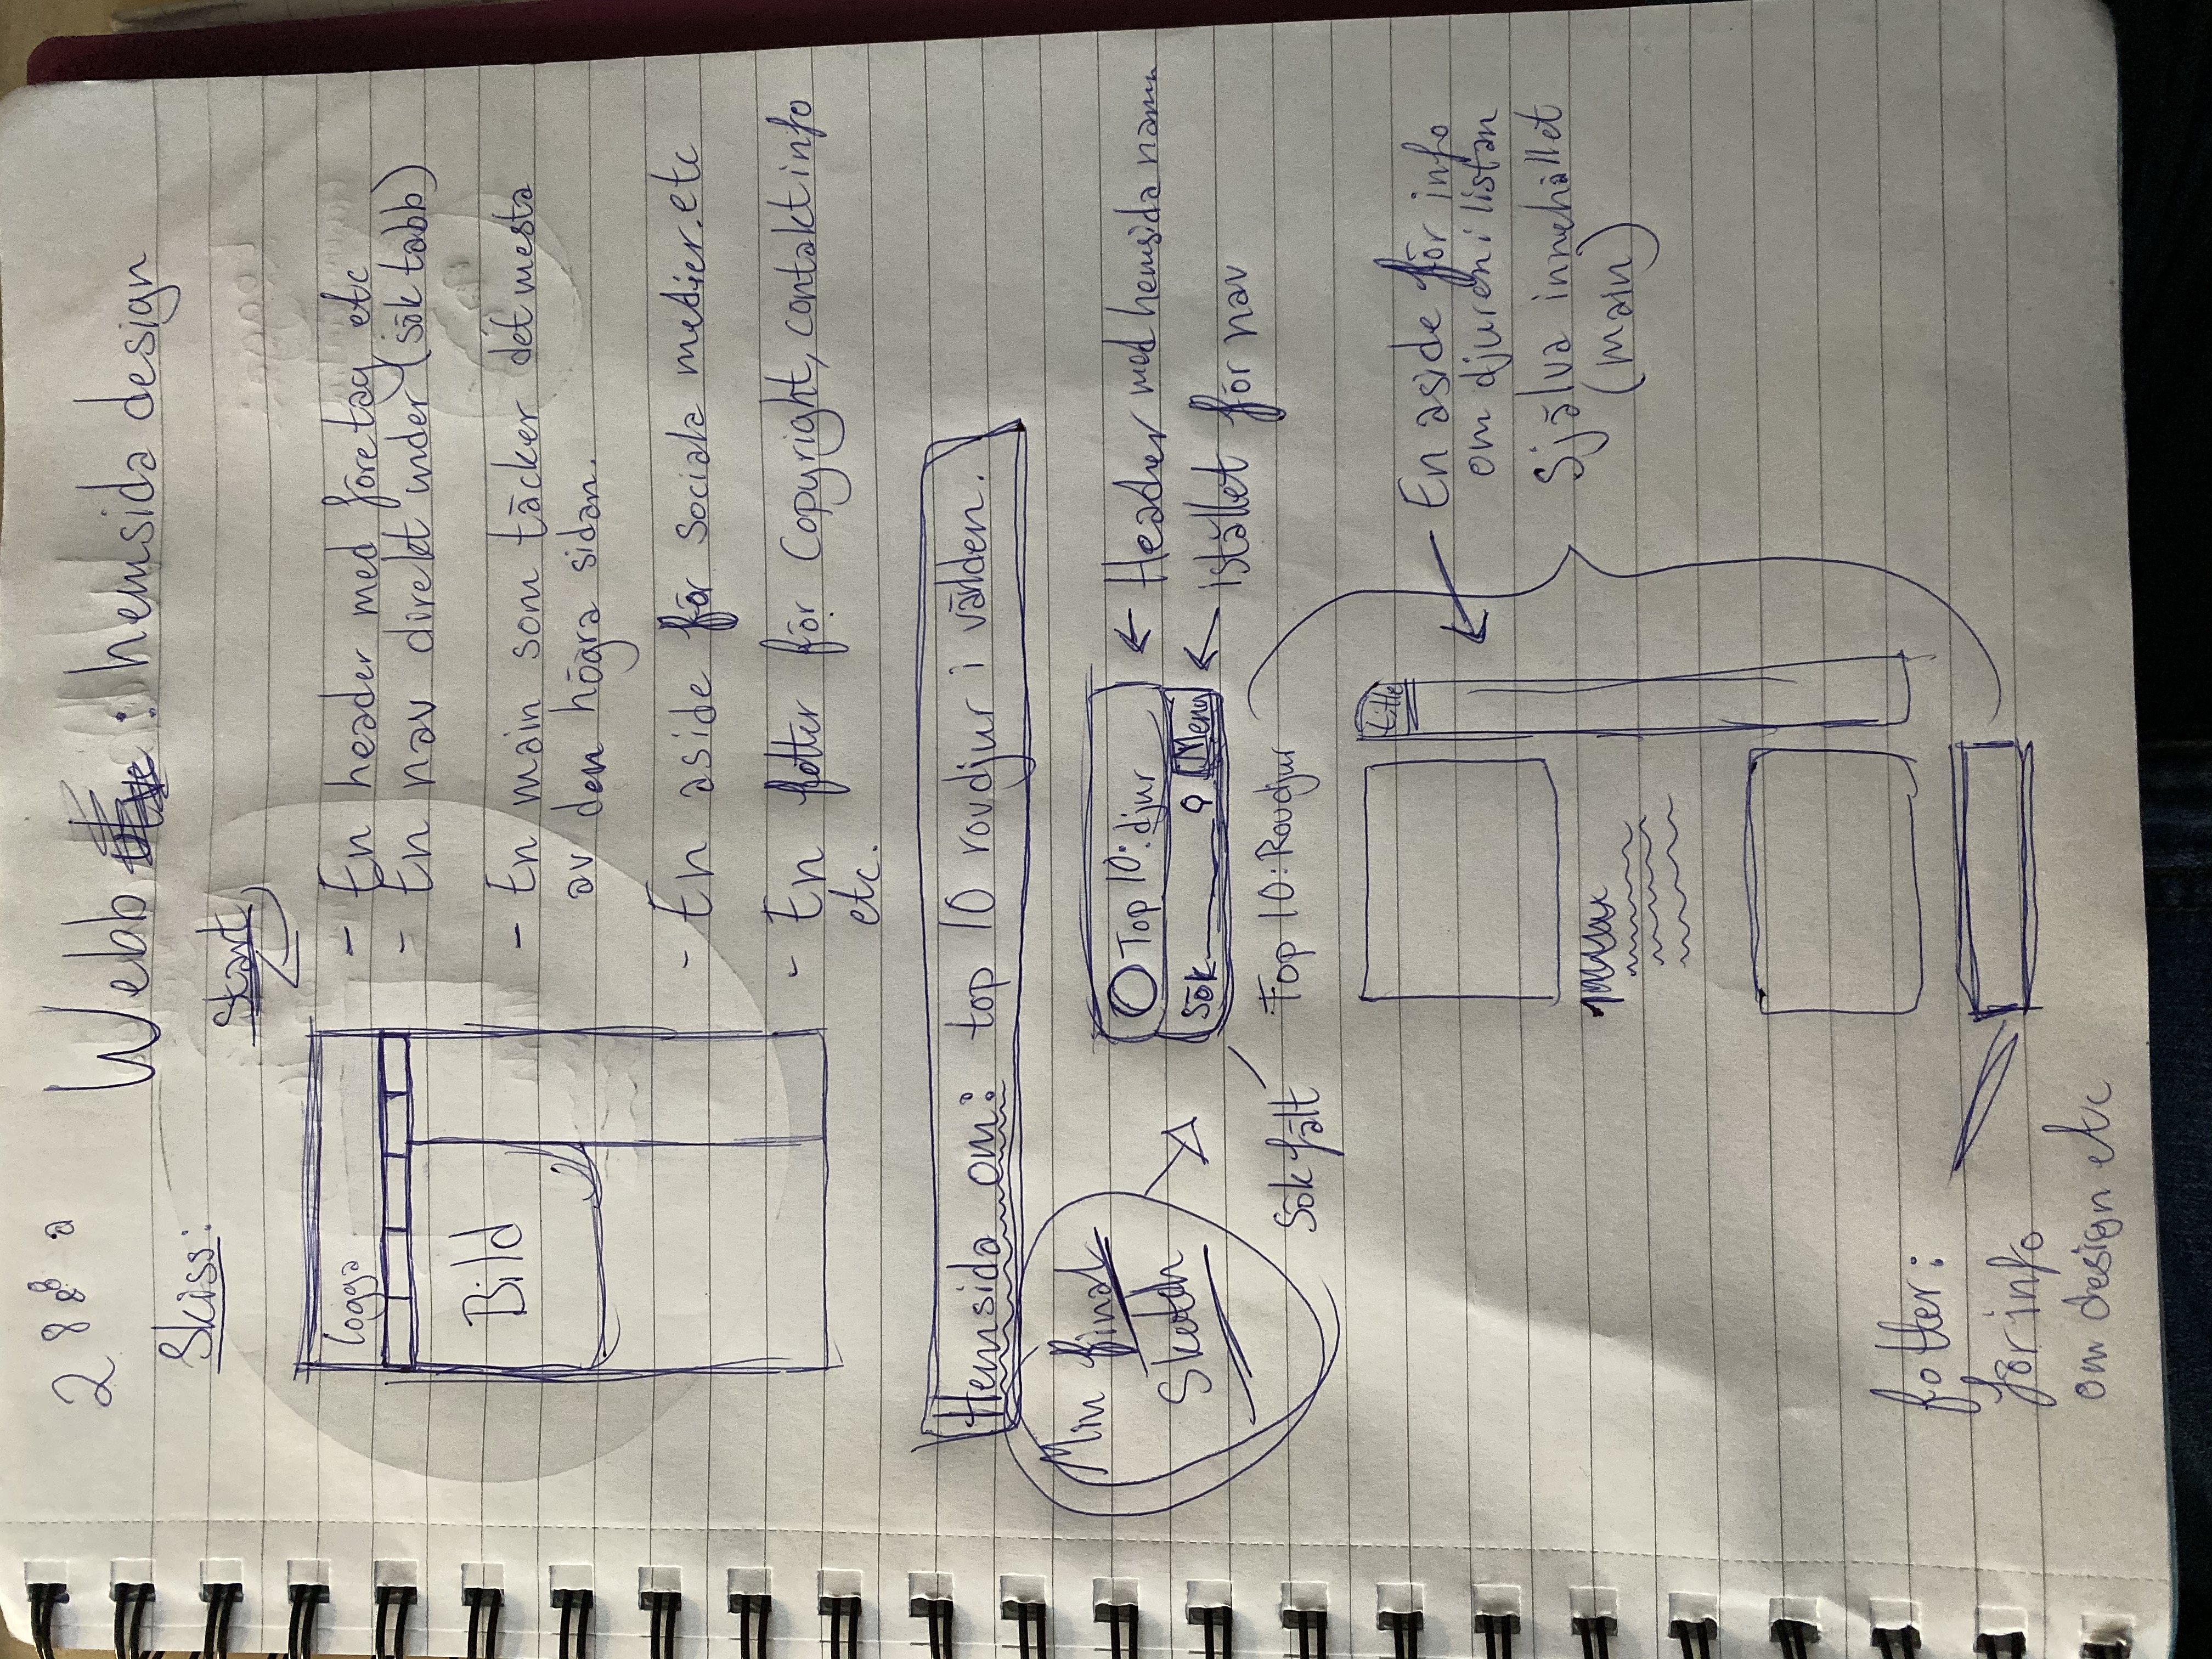 2 8 8 8 a
Webb : hemsida design
Skiss:
Start
logga
- En header med företag etc
- En nav direkt under (sök tabb)
Bild
- En main som täcker det mesta
av den högra sidan.
- En aside för sociala medier.etc
- En fotter för Copyright, contakt info
etc.
Hemsida om: top 10 rovdjur i världen.
Min final
Sketch
Top 10: djur
← Header med hemsida namn
Sök Meny
← istället för nav
Sökfält
Top 10: Rovdjur
title
En aside för info
om djuren i listan
Själva innehållet
(main)
fotter:
för info
om design etc